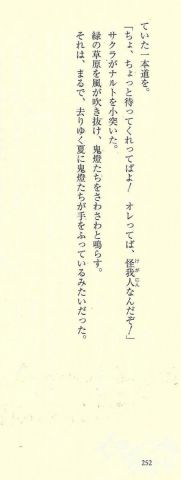 ていた一本道を。
「ちょ、ちょっと待ってくれってばよ！　オレってば、怪我人なんだぞ！」
サクラがナルトを小突いた。
緑の草原を風が吹き抜け、鬼燈たちをさわさわと鳴らす。
それは、まるで、去りゆく夏に鬼燈たちが手をふっているみたいだった。
252